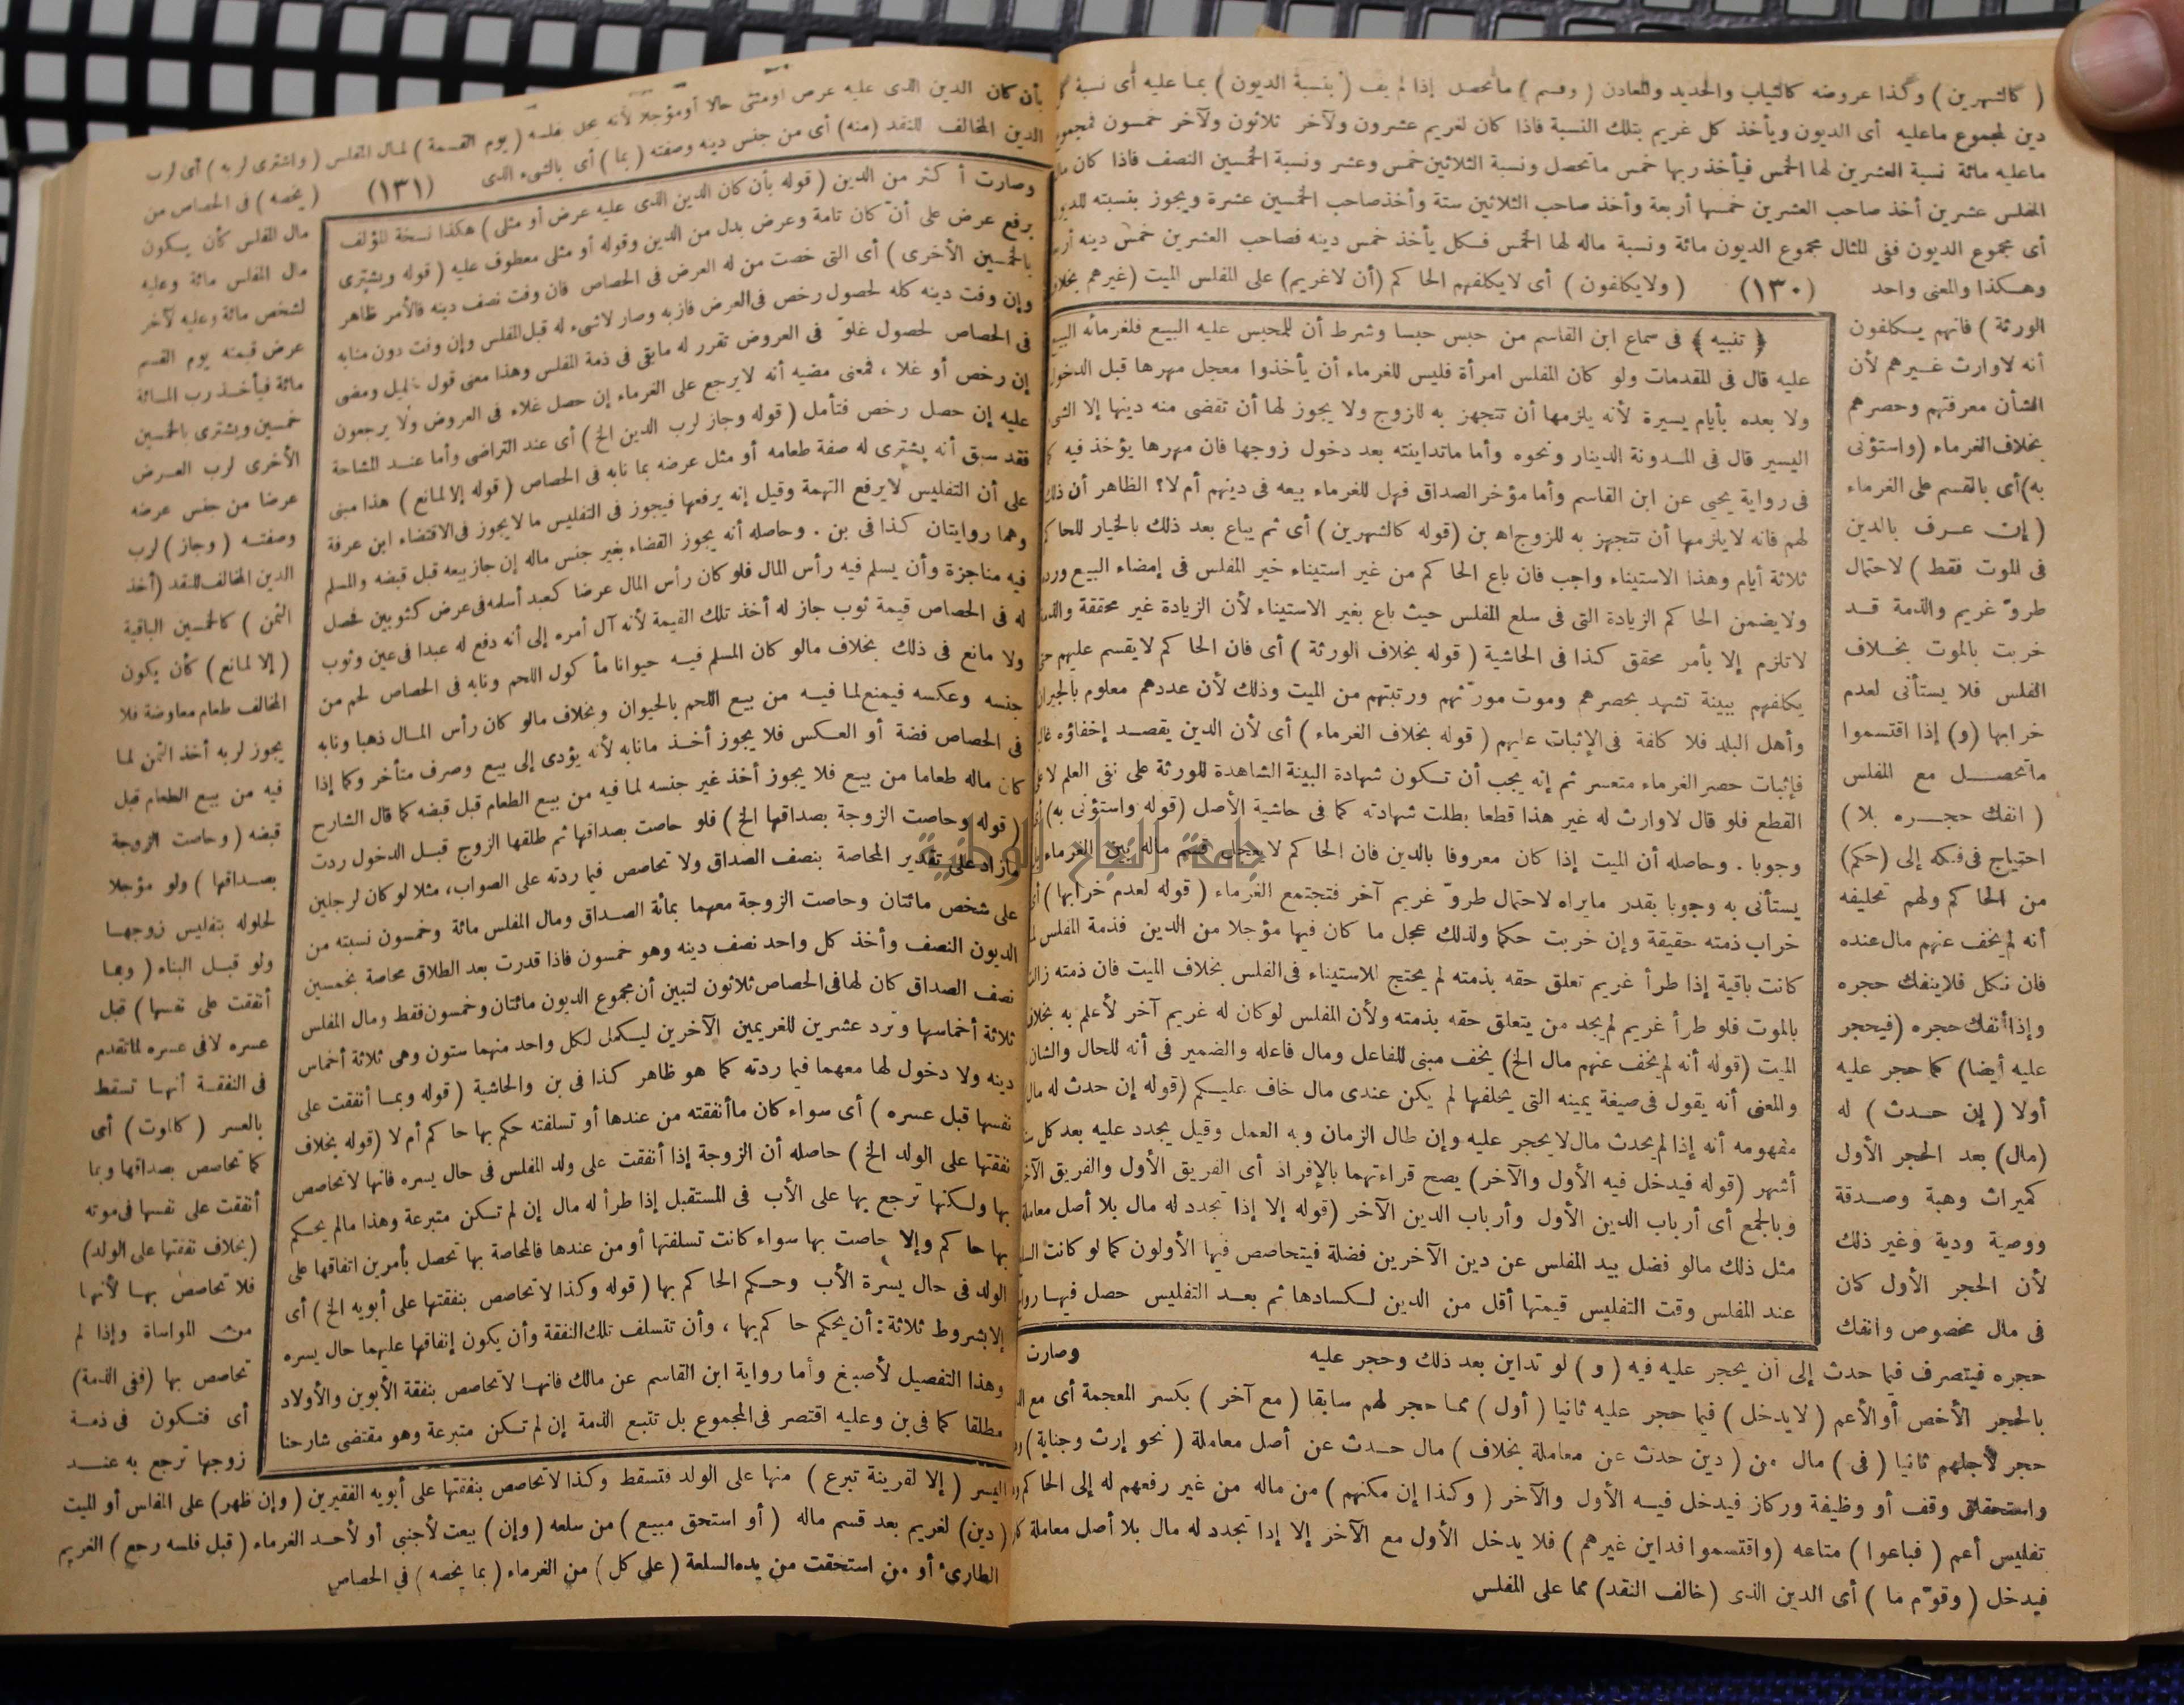 ( كالشهرين ) وكذا عروضه كالثياب والحديد والمعادن ( وقسم ) ماتحصل إذا لم يف ( بنسبة الديون ) بما عليه أى نسبة
دين لمجموع ماعليه أى الديون ويأخذ كل غريم بتلك النسبة فاذا كان لغريم عشرون ولآخر ثلاثون ولآخر خمسون فمجموع
ماعليه مائة نسبة العشرين لها الخمس فيأخذ ربها خمس ماتحصل ونسبة الثلاثين خمس وعشر ونسبة الخمسين النصف فاذا كان
المفلس عشرين أخذ صاحب العشرين خمسها أربعة وأخذ صاحب الثلاثين ستة وأخذصاحب الخمسين عشرة ويجوز بنسبته
أى مجموع الديون ففى المثال مجموع الديون مائة ونسبة ماله لها الخمس فكل يأخذ خمس دينه فصاحب العشرين خمس دينه
وهكذا والمعنى واحد (١٣٠) ( ولايكلفون ) أى لايكلفهم الحاكم (أن لاغريم) على المفلس الميت (غيرهم
الورثة ) فانهم يكلفون
أنه لاوارث غيرهم لأن
الشأن معرفتهم وحصرهم
بخلاف الغرماء (واستؤنى
به) أى بالقسم على الغرماء
( إن عرف بالدين
فى الموت فقط ) لاحتمال
طروّ غريم والذمة قد
خربت بالموت بخلاف
المفلس فلا يستأنى لعدم
خرابها (و) إذا اقتسموا
ماتحصل مع المفلس
( انفك حجره بلا )
احتياج فى فكه إلى (حكم)
من الحاكم ولهم تحليفه
أنه لم يخف عنهم مال عنده
فان نكل فلاينفك حجره
وإذا انفك حجره (فيحجر
عليه أيضا) كما حجر عليه
أولا ( إن حدث ) له
(مال) بعد الحجر الأول
كميراث وهبة وصدقة
ووصية ودية وغير ذلك
لأن الحجر الأول كان
فى مال مخصوص وانفك
﴿ تنبيه ﴾ فى سماع ابن القاسم من حبس حبسا وشرط أن للمحبس عليه البيع فلغرمائه
عليه قال فى المقدمات ولو كان المفلس امرأة فليس للغرماء أن يأخذوا معجل مهرها قبل الدخول
ولا بعده بأيام يسيرة لأنه يلزمها أن تتجهز به للزوج ولا يجوز لها أن تقضى منه دينها إلا
اليسير قال فى المدونة الدينار ونحوه وأما ماتداينته بعد دخول زوجها فان مهرها يؤخذ فيه
فى رواية يحيى عن ابن القاسم وأما مؤخر الصداق فهل للغرماء بيعه فى دينهم أم لا؟ الظاهر أن
لهم فانه لايلزمها أن تتجهز به للزوج اه بن (قوله كالشهرين) أى ثم يباع بعد ذلك بالخيار
ثلاثة أيام وهذا الاستيناء واجب فان باع الحاكم من غير استيناء خير المفلس فى إمضاء البيع
ولايضمن الحاكم الزيادة التى فى سلع المفلس حيث باع بغير الاستيناء لأن الزيادة غير محققة
لاتلزم إلا بأمر محقق كذا فى الحاشية ( قوله بخلاف الورثة ) أى فان الحاكم لايقسم عليهم
يكلفهم ببينة تشهد بحصرهم وموت مورّثهم ورتبتهم من الميت وذلك لأن عددهم معلوم بالجيران
وأهل البلد فلا كلفة فى الإثبات عليهم ( قوله بخلاف الغرماء ) أى لأن الدين يقصد إخفاؤه
فإثبات حصر الغرماء متعسر ثم إنه يجب أن تكون شهادة البينة الشاهدة للورثة على نفى العلم
القطع فلو قال لاوارث له غير هذا قطعا بطلت شهادته كما فى حاشية الأصل (قوله واستؤنى به)
وجوبا . وحاصله أن الميت إذا كان معروفا بالدين فان الحاكم لايعجل قسم ماله بين الغرماء
يستأنى به وجوبا بقدر مايراه لاحتمال طروّ غريم آخر فتجتمع الغرماء ( قوله لعدم خرابها )
خراب ذمته حقيقة وإن خربت حكما ولذلك عجل ما كان فيها مؤجلا من الدين فذمة المفلس
كانت باقية إذا طرأ غريم تعلق حقه بذمته لم يحتج للاستيناء فى الفلس بخلاف الميت فان ذمته
بالموت فلو طرأ غريم لم يجد من يتعلق حقه بذمته ولأن المفلس لوكان له غريم آخر لأعلم به
الميت (قوله أنه لم يخف عنهم مال الخ) يخف مبنى للفاعل ومال فاعله والضمير فى أنه للحال والشان
والمعنى أنه يقول فى صيغة يمينه التى يحلفها لم يكن عندى مال خاف عليكم (قوله إن حدث له مال
مفهومه أنه إذا لم يحدث مال لايحجر عليه وإن طال الزمان وبه العمل وقيل يجدد عليه بعد كل
أشهر (قوله فيدخل فيه الأول والآخر) يصح قراءتهما بالإفراد أى الفريق الأول والفريق
وبالجمع أى أرباب الدين الأول وأرباب الدين الآخر (قوله إلا إذا تجدد له مال بلا أصل
مثل ذلك مالو فضل بيد المفلس عن دين الآخرين فضلة فيتحاصص فيها الأولون كما لو كانت
عند المفلس وقت التفليس قيمتها أقل من الدين لكسادها ثم بعد التفليس حصل فيها
وصارت
حجره فيتصرف فيما حدث إلى أن يحجر عليه فيه ( و ) لو تداين بعد ذلك وحجر عليه
بالحجر الأخص أو الأعم ( لايدخل ) فيما حجر عليه ثانيا ( أول ) مما حجر لهم سابقا ( مع آخر ) بكسر المعجمة أى مع
حجر لأجلهم ثانيا ( فى ) مال من ( دين حدث عن معاملة بخلاف ) مال حدث عن أصل معاملة ( نحو إرث وجناية )
واستحقاق وقف أو وظيفة وركاز فيدخل فيه الأول والآخر ( وكذا إن مكنهم ) من ماله من غير رفعهم له إلى الحاكم
تفليس أعم ( فباعوا ) متاعه (واقتسموا فداين غيرهم ) فلا يدخل الأول مع الآخر إلا إذا تجدد له مال بلا أصل معاملة
فيدخل ( وقوّم ما ) أى الدين الذى (خالف النقد) مما على المفلس
بأن كان الدين الذى عليه عرض أومثلى حالا أومؤجلا لأنه يحل بفلسه ( يوم القسمة ) لمال المفلس ( واشترى لربه ) أى لرب
الدين المخالف للنقد (منه) أى من جنس دينه وصفته ( بما ) أى بالشىء الذى (١٣١) ( يخصه ) فى الحصاص من
مال المفلس كأن يكون
مال المفلس مائة وعليه
لشخص مائة وعليه لآخر
عرض قيمته يوم القسم
مائة فيأخذ رب المائة
خمسين ويشترى بالخمسين
الأخرى لرب العرض
عرضا من جنس عرضه
وصفته ( وجاز ) لرب
الدين المخالف للنقد (أخذ
الثمن ) كالخمسين الباقية
( إلا لمانع ) كأن يكون
المخالف طعام معاوضة فلا
يجوز لربه أخذ الثمن لما
فيه من بيع الطعام قبل
قبضه ( وحاصت الزوجة
بصداقها ) ولو مؤجلا
لحلوله بتفليس زوجها
ولو قبل البناء ( وبما
أنفقت على نفسها ) قبل
عسره لافى عسره لماتقدم
فى النفقة أنها تسقط
بالعسر ( كالموت ) أى
كما تحاصص بصداقها وبما
أنفقت على نفسها فى موته
(بخلاف نفقتها على الولد)
فلا تحاصص بها لأنها
من المواساة وإذا لم
تحاصص بها (ففى الذمة)
أى فتكون فى ذمة
زوجها ترجع به عند
وصارت أكثر من الدين ( قوله بأن كان الدين الذى عليه عرض أو مثلى ) هكذا نسخة المؤلف
برفع عرض على أنّ كان تامة وعرض بدل من الدين وقوله أو مثلى معطوف عليه ( قوله ويشترى
بالخمسين الأخرى ) أى التى خصت من له العرض فى الحصاص فان وفت نصف دينه فالأمر ظاهر
وإن وفت دينه كله لحصول رخص فى العرض فازبه وصار لاشىء له قبل المفلس وإن وفت دون منابه
فى الحصاص لحصول غلوّ فى العروض تقرر له مابقى فى ذمة المفلس وهذا معنى قول خليل ومضى
إن رخص أو غلا ، فمعنى مضيه أنه لايرجع على الغرماء إن حصل غلاء فى العروض ولا يرجعون
عليه إن حصل رخص فتأمل ( قوله وجاز لرب الدين الخ ) أى عند التراضى وأما عند المشاحة
فقد سبق أنه يشترى له صفة طعامه أو مثل عرضه بما نابه فى الحصاص ( قوله إلا لمانع ) هذا مبنى
على أن التفليس لايرفع التهمة وقيل إنه يرفعها فيجوز فى التفليس ما لا يجوز فى الاقتضاء ابن عرفة
وهما روايتان كذا فى بن . وحاصله أنه يجوز القضاء بغير جنس ماله إن جاز بيعه قبل قبضه والمسلم
فيه مناجزة وأن يسلم فيه رأس المال فلو كان رأس المال عرضا كعبد أسلمه فى عرض كثوبين فحصل
له فى الحصاص قيمة ثوب جاز له أخذ تلك القيمة لأنه آل أمره إلى أنه دفع له عبدا فى عين وثوب
ولا مانع فى ذلك بخلاف مالو كان المسلم فيه حيوانا مأكول اللحم ونابه فى الحصاص لحم من
جنسه وعكسه فيمنع لما فيه من بيع اللحم بالحيوان وبخلاف مالو كان رأس المال ذهبا ونابه
فى الحصاص فضة أو العكس فلا يجوز أخذ مانابه لأنه يؤدى إلى بيع وصرف متأخر وكما إذا
كان ماله طعاما من بيع فلا يجوز أخذ غير جنسه لما فيه من بيع الطعام قبل قبضه كما قال الشارح
( قوله وحاصت الزوجة بصداقها الخ ) فلو حاصت بصداقها ثم طلقها الزوج قبل الدخول ردت
مازاد على تقدير المحاصة بنصف الصداق ولا تحاصص فيما ردته على الصواب، مثلا لو كان لرجلين
على شخص مائتان وحاصت الزوجة معهما بمائة الصداق ومال المفلس مائة وخمسون نسبته من
الديون النصف وأخذ كل واحد نصف دينه وهو خمسون فاذا قدرت بعد الطلاق محاصة بخمسين
نصف الصداق كان لها فى الحصاص ثلاثون لتبين أن مجموع الديون مائتان وخمسون فقط ومال المفلس
ثلاثة أخماسها وترد عشرين للغريمين الآخرين ليكمل لكل واحد منهما ستون وهى ثلاثة أخماس
دينه ولا دخول لها معهما فيما ردته كما هو ظاهر كذا فى بن والحاشية ( قوله وبما أنفقت على
نفسها قبل عسره ) أى سواء كان ماأنفقته من عندها أو تسلفته حكم بها حاكم أم لا (قوله بخلاف
نفقتها على الولد الخ ) حاصله أن الزوجة إذا أنفقت على ولد المفلس فى حال يسره فانها لاتحاصص
بها ولكنها ترجع بها على الأب فى المستقبل إذا طرأ له مال إن لم تكن متبرعة وهذا مالم يحكم
بها حاكم وإلا حاصت بها سواء كانت تسلفتها أو من عندها فالمحاصة بها تحصل بأمرين انفاقها على
الولد فى حال يسرة الأب وحكم الحاكم بها ( قوله وكذا لاتحاصص بنفقتها على أبويه الخ ) أى
إلا بشروط ثلاثة: أن يحكم حاكم بها ، وأن تتسلف تلك النفقة وأن يكون إنفاقها عليهما حال يسره
وهذا التفصيل لأصبغ وأما رواية ابن القاسم عن مالك فانها لاتحاصص بنفقة الأبوين والأولاد
مطلقا كما فى بن وعليه اقتصر فى المجموع بل تتبع الذمة إن لم تكن متبرعة وهو مقتضى شارحنا
اليسر ( إلا لقرينة تبرع ) منها على الولد فتسقط وكذا لاتحاصص بنفقتها على أبويه الفقيرين ( وإن ظهر) على المفلس أو الميت
(دين) لغريم بعد قسم ماله ( أو استحق مبيع ) من سلعه ( وإن ) بيعت لأجنبى أو لأحد الغرماء ( قبل فلسه رجع ) الغريم
الطارئ أو من استحقت من يده السلعة ( على كل ) من الغرماء ( بما يخصه ) في الحصاص
جامعة النجاح الوطنية